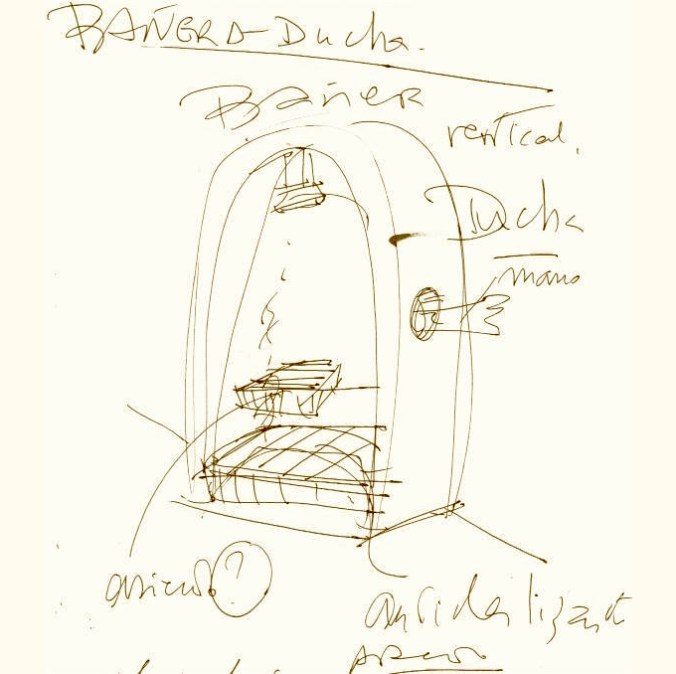 BAÑERA-Ducha.
Bañera
vertical.
Ducha
mano
asiento?
antideslizante